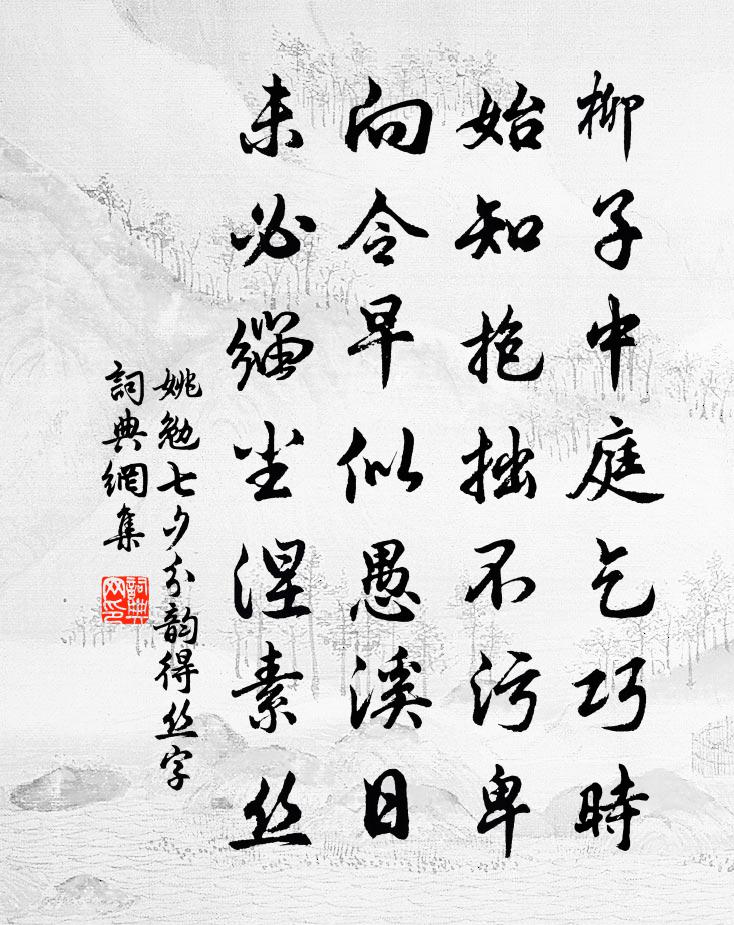 柳子中庭乞巧時
始知抱拙不污卑
向令早似愚溪日
未必緇尘涅素丝
姚勉七夕分韵得丝字
詞典網集
詞典网印